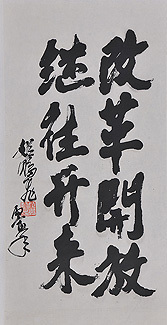 改革開放
继往开未